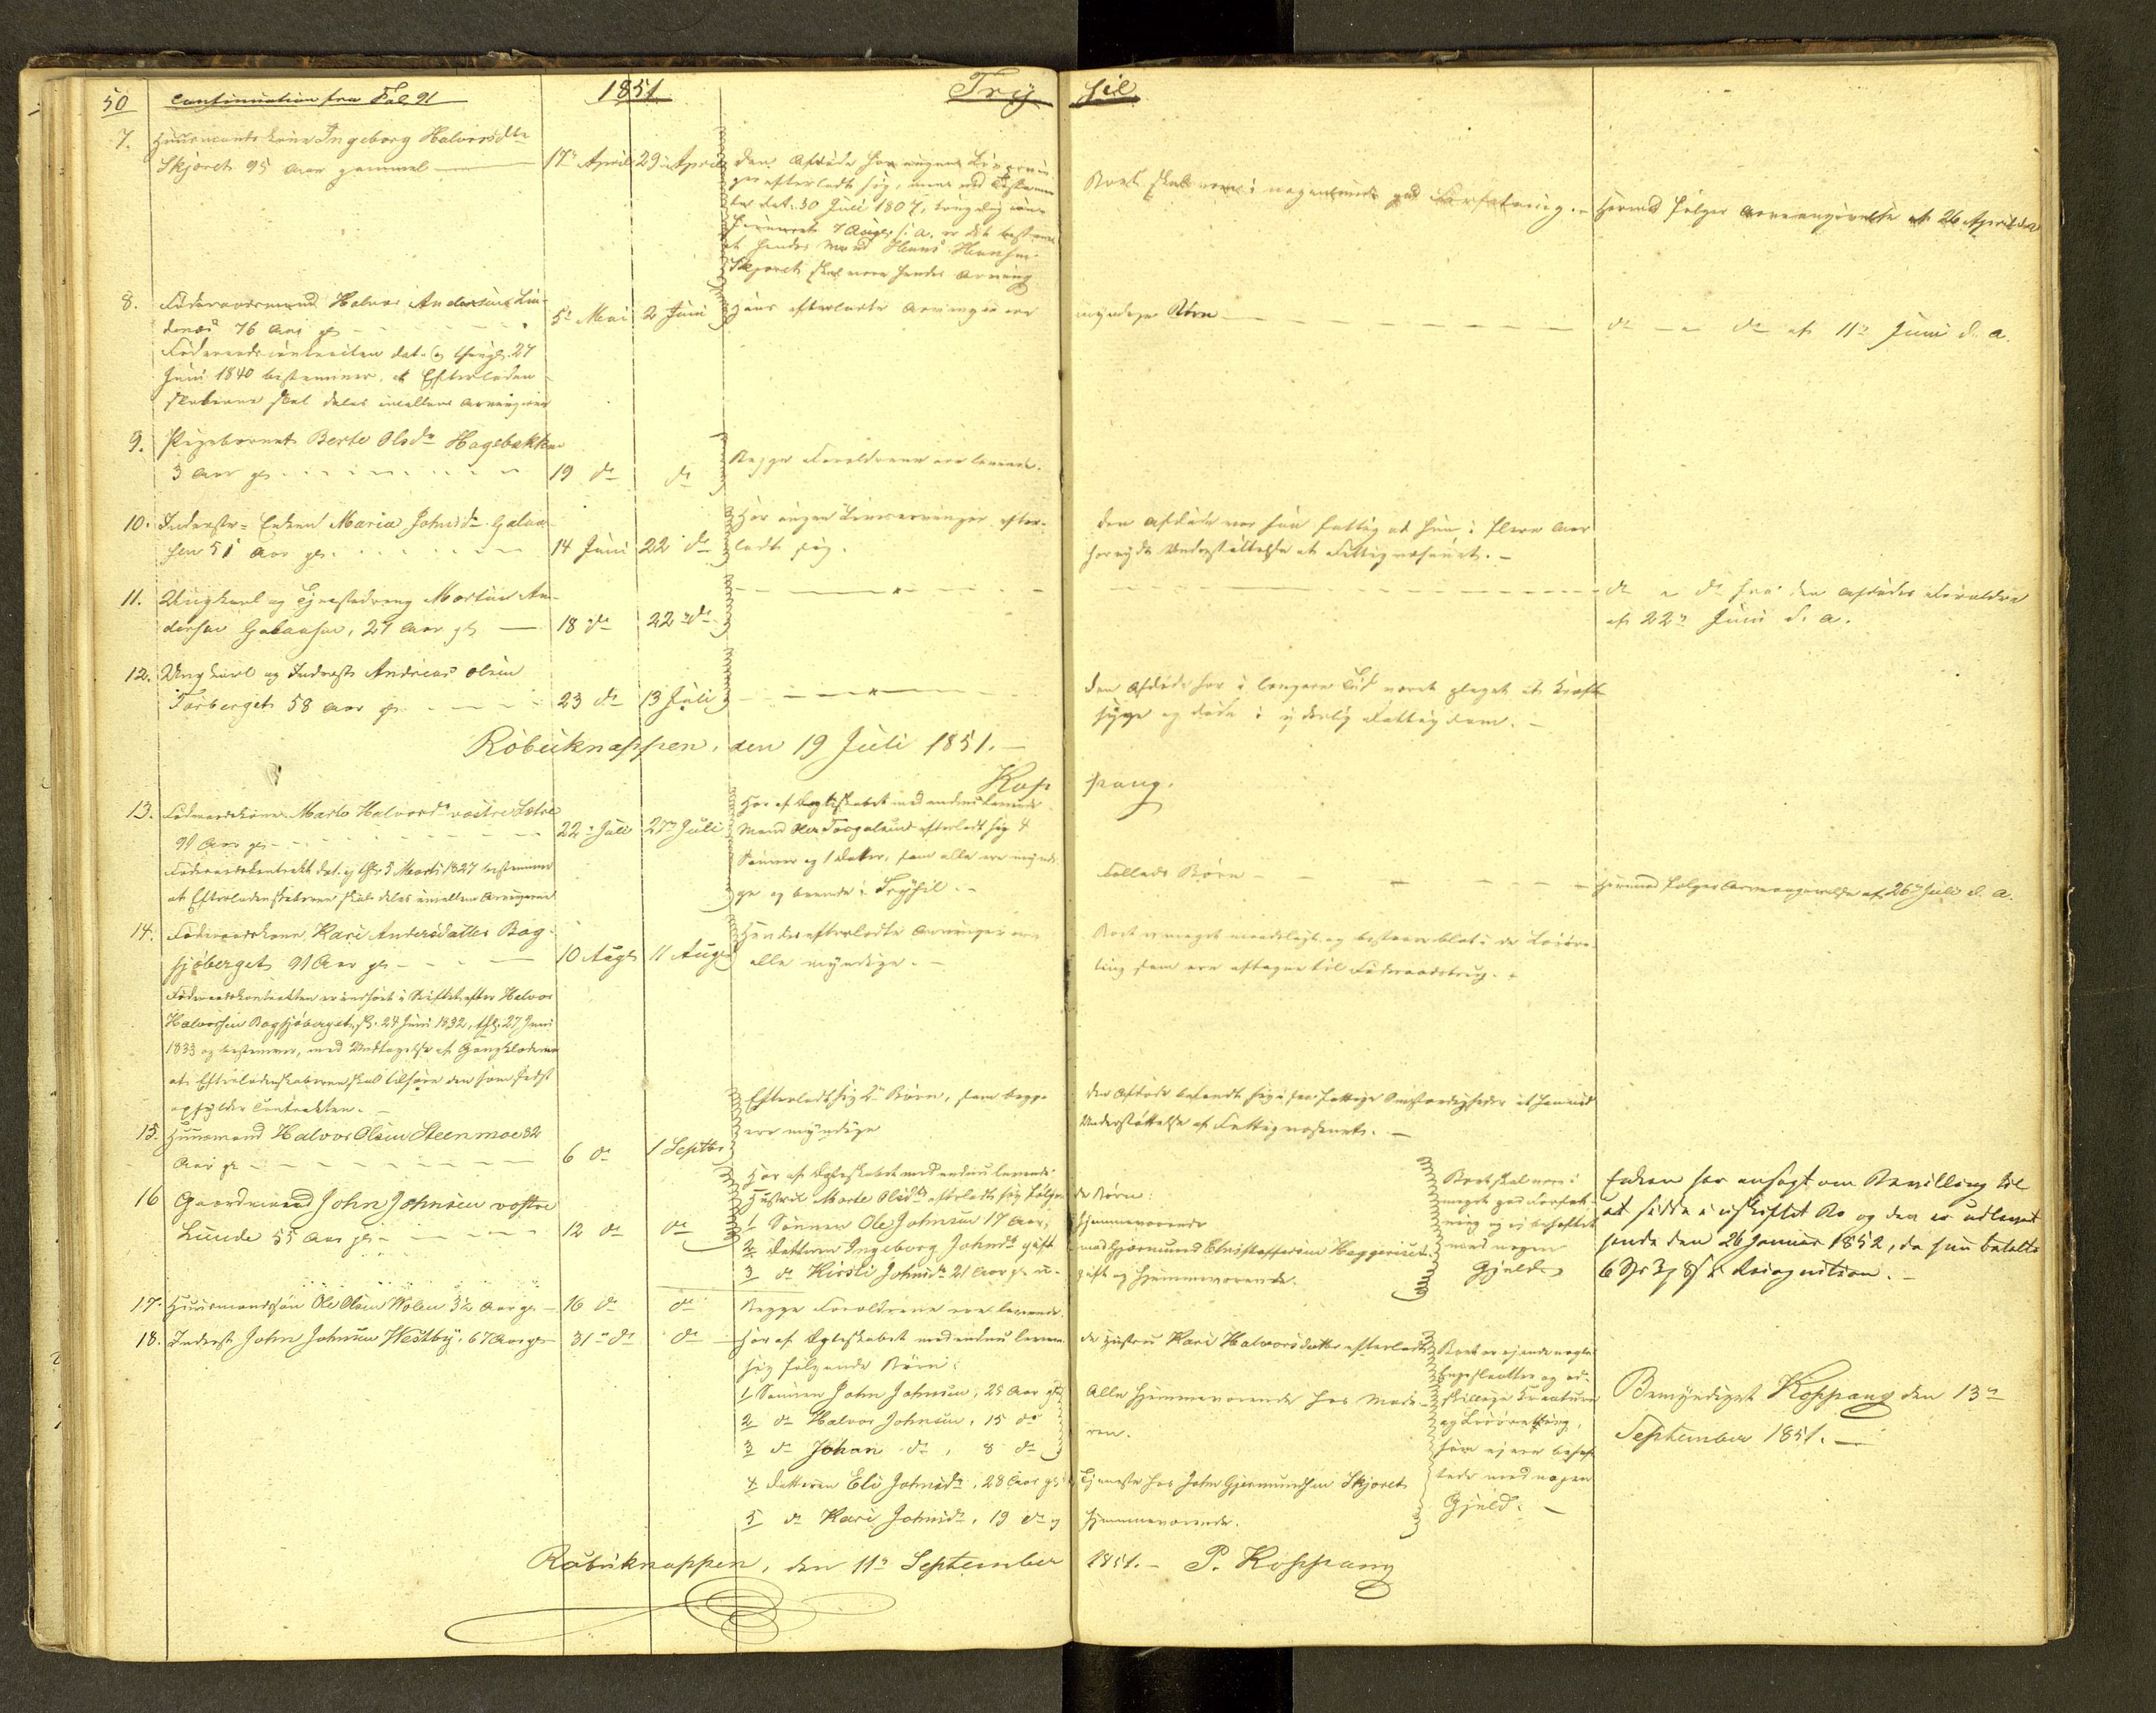 50 Continuation fra Fol 91 1851 Trysil
7. Huusmands Kone Ingeborg Halvorsdtr
Skjøret 95 Aar gammel 17de April 29 April
Den Afdøde har ingen Livsarvin-
ger efterladt sig, men ved Testamen-
te dat. 30 Juli 1807,
7 Augs s. a. er det bestemt
at hendes Mand Hans Hansen
Skjøret skal være hendes Arving
Boet skal være i nogenlunde god Forfatning. - Hermed følger Arveangivelse af 26 April d. a.
8. Føderaadsmand Halvor Andersen Lin-
denæs 76 Aar gl 5te Mai 2 Juni Hans efterladte Arvinger ere myndige Børn do - do af 11te Juni d. a.
Føderaadscontracten dat. og thingl. 27
Juni 1840 bestemmer, at Efterladen-
skaberne skal deles imellem Arvingerne
9. Pigebarnet Berte Olsdr Hagebakken
3 Aar gl 19 do do Begge Forældrene ere levende.
10. Inderst-Enken Maria Johnsdr Galaa-
sen 51 Aar gl. 14 Juni 22 do
Har ingen Livsarvinger efter-
ladt sig.
Den Afdøde var saa fattig at hun i flere Aar
har nydt Understøttelse af Fattigvæsenet. -
11. Ungkarl og Tjenestedreng Martin An-
dersen Galaasen, 27 Aar gl 18 do 22 do
do - do fra den Afdødes Forældre
af 22de Juni d. a.
12. Ungkarl og Inderst Andreas Olsen
Tørberget 58 Aar gl. 23 do 13 Juli
Den Afdøde har i længere Tid været plaget af Kræft-
syge og døde i yderlig Fattigdom. -
Robuknappen, den 19 Juli 1851. -
Koppang.
13. Føderaadskone Marte Halvorsdr vestre Sætre
91 Aar gl 22de Juli 27de Juli
Føderaadskontrakt dat. og thgl. 5 Marts 1827 bestemmer
at Efterladenskaberne skal deles imellem Arvingerne
Har af Ægteskabet med endnu levende
Mand efterladt sig 4
Sønner og 1 Datter, som alle ere myndi-
ge og boende i Trysil. -
Fælleds Børn - Hermed følger Arveangivelse af 26de Juli d. a.
14. Føderaadskone Kari Andersdatter Bag-
sjøberget 91 Aar gl 10 Augs 11 Augs
Hendes efterladte Arvinger ere
alle myndige. -
Boet er meget ubetydeligt og bestaaer blot i de Løsøre-
ting som ere aftagne til Føderaadsbrug.
Føderaadskontrakten er indført i Skiftet efter Halvor
Halvorsen Bagsjøberget, sl. 24 Juni 1832, thgl. 27 Juni
1833 og bestemmer, med Undtagelse af Gangklæderne
at Efterladenskaberne skal tilhøre den som sidst
opfylder Contrakten. -
15. Huusmand Halvor Olsen Steenmoe 82
Aar gl 6 do 1 Septbr
Efterladt sig 2de Børn, som begge
ere myndige
Den Afdøde befandt sig i saa fattige Omstændigheder at han nød
Understøttelse af Fattigvæsenet. -
16 Gaardmand John Johnsen vestre
Lunde 55 Aar gl 12 do do
Har af Ægteskabet med endnu levende
Hustru Marte Olsdtr efterladt sig følgende Børn:
1 Sønnen Ole Johnsen 17 Aar, hjemmeværende
2 Datteren Ingeborg Johnsdtr gift med Gjermund Christoffersen Haggeriset
3 do Kirsti Johnsdr 21 Aar gl. u- gift og hjemmeværende.
Boet skal være i
meget god Forfat-
ning og ei behæftet
med nogen
Gjeld
Enken har ansøgt om Bevilling til
at sidde i uskiftet Bo og den er udleveret
hende den 26 Januar 1852, da hun betalte
6 Spd 3 # 8 s i Recognition. -
17. Huusmandssøn Ole Olsen Wolen 3½ Aar gl 16 do do Begge Forældrene ere levende
18. Inderst John Johnsen Westby, 67 Aar gl 31te do do
Har af Ægteskabet med endnu levende Hustru Kari Halvorsdatter efterladt
sig følgende Børn:
1 Sønnen John Johnsen, 25 Aar gl
2 do Halvor Johnsen, 15 do
3 do Johan do, 8 do
Alle hjemmeværende hos Mode-
ren.
4 Datteren Eli Johnsdr, 28 Aar gl Tjeneste hos John Gjermundsen Skjøret
5 do Kari Johnsdr, 19 do og hjemmeværende.
Boet er ejende nogle
Engesletter og ad-
skillige Kreaturer
og Løsøreting,
som ej ere behæf-
tede med nogen
Gjeld. -
Bemyndiget Koppang den 13de
September 1851. -
Robuknappen, den 11te September 1851. - P. Koppang